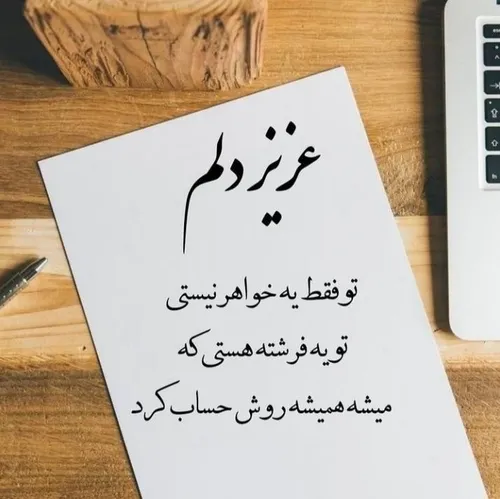 عزیز دلم
تو فقط یه خواهر نیستی
تو یه فرشته هستی که
میشه همیشه روش حساب کرد